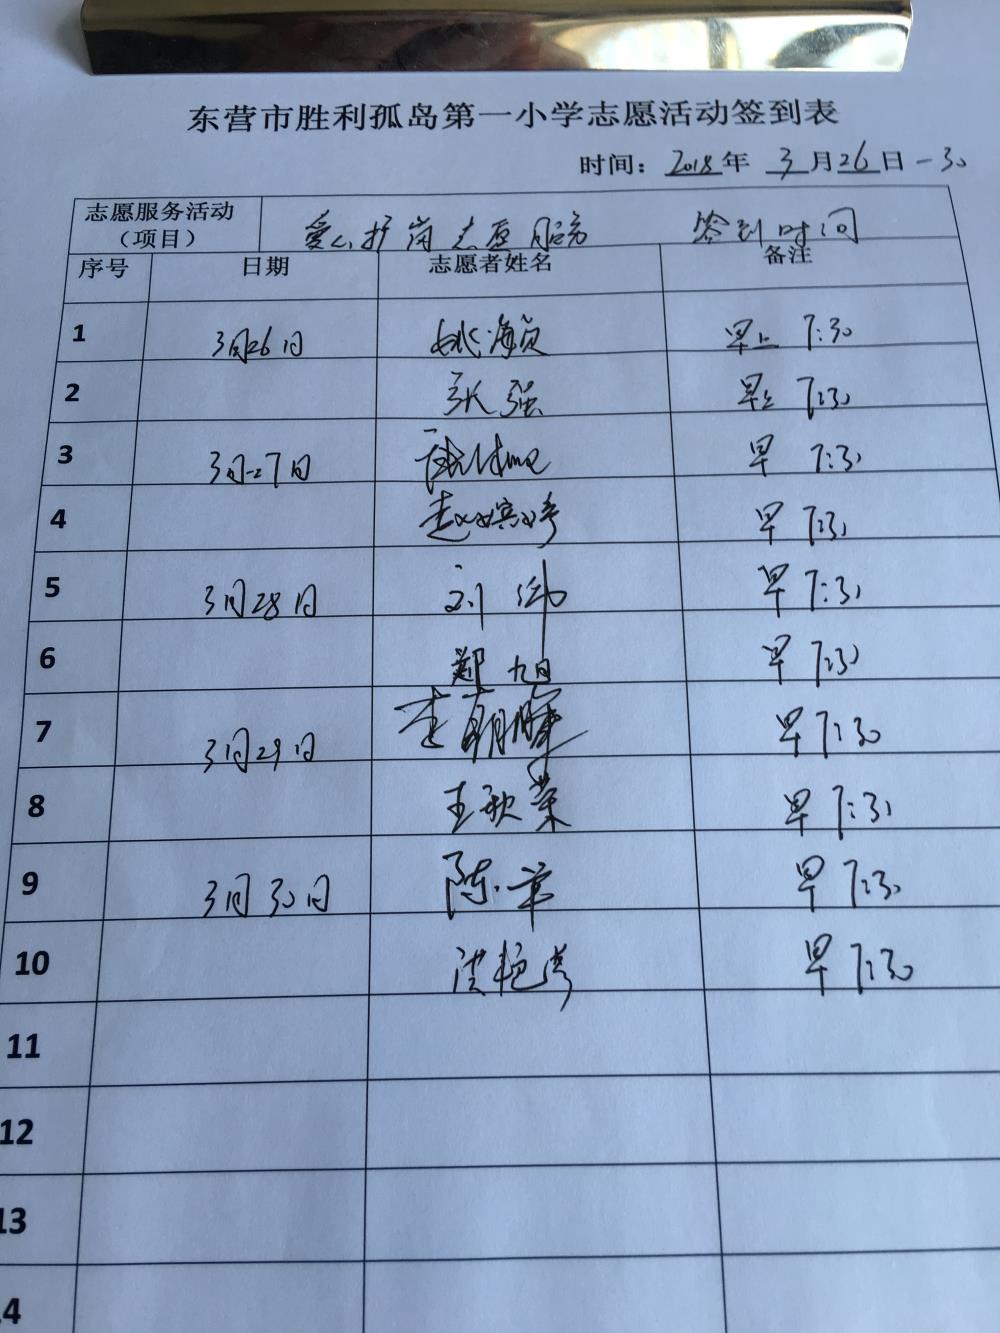 东营市胜利孤岛第一小学志愿活动签到表
时间：2018年 3月26日-30
志愿服务活动（项目） 爱心护岗志愿服务 签到时间
序号 日期 志愿者姓名 备注
1 3月26日 姚海员 早上 7:30
2 张强 早上 7:30
3 3月27日 早 7:30
4 赵嫔婷 早 7:30
5 3月28日 刘伟 早 7:30
6 郑旭 早 7:30
7 3月29日 李朝晖 早 7:30
8 王秋荣 早 7:30
9 3月30日 陈军 早 7:30
10 洪艳湾 早 7:30
11
12
13
14